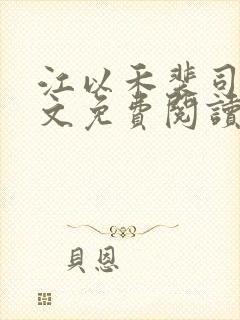 江以禾裴司
文免費閱讀
貝恩